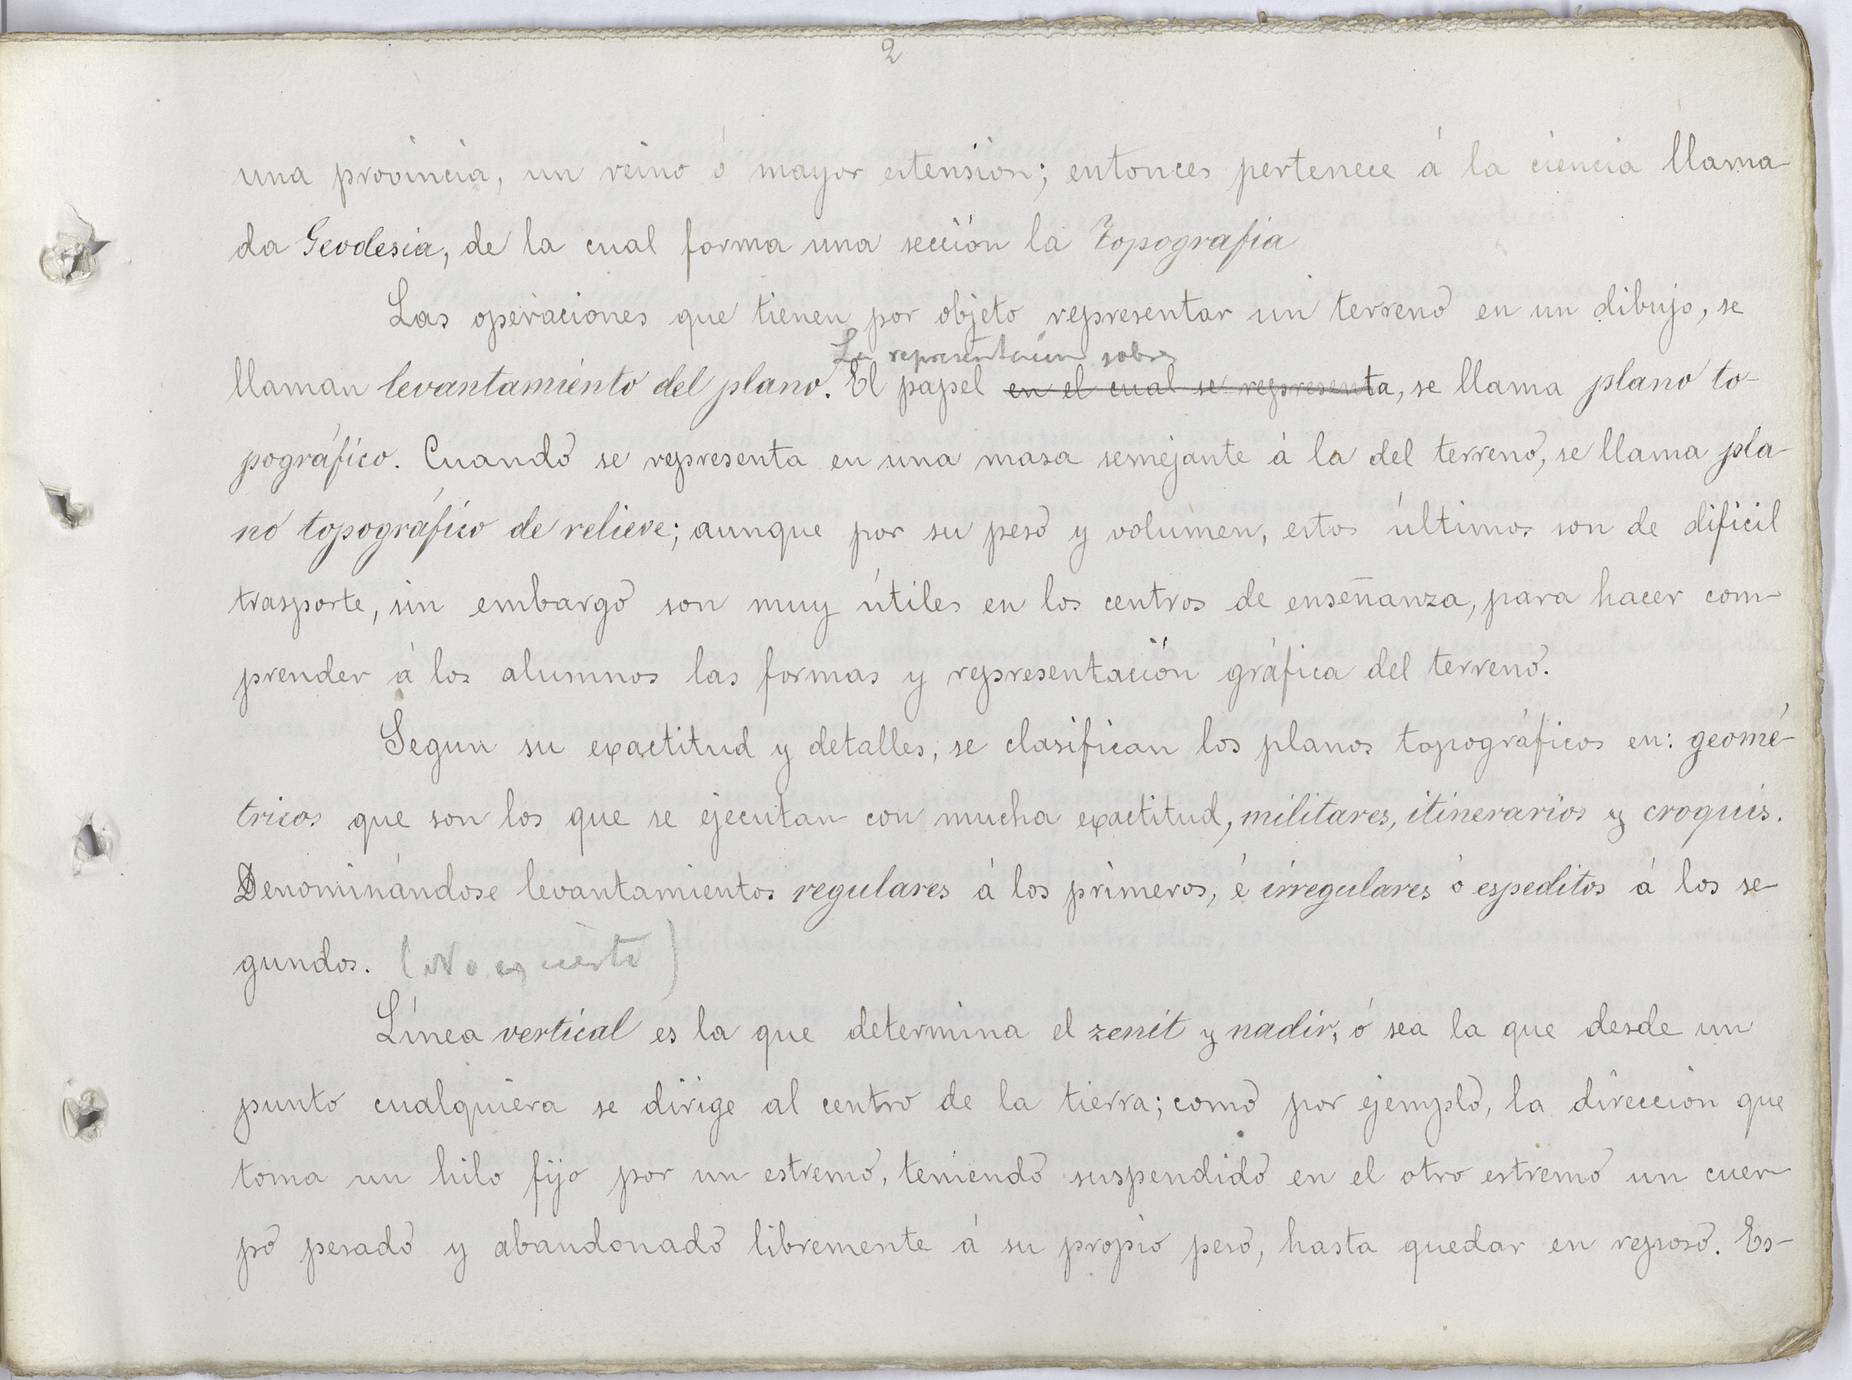 2
una provincia, un reino ó mayor estension; entonces pertenece á la ciencia llama-
da Geodesia, de la cual forma una sección la Topografía
Las operaciones que tienen por objeto representar un terreno en un dibujo, se
La representación sobre
llaman levantamiento del plano. El papel en el cual se representa, se llama plano to-
pográfico. Cuando se representa en una masa semejante á la del terreno, se llama pla-
no topográfico de relieve; aunque por su peso y volumen, estos últimos son de dificil
trasporte, sin embargo son muy útiles en los centros de enseñanza, para hacer com-
prender á los alumnos las formas y representación gráfica del terreno.
Segun su exactitud y detalles, se clasifican los planos topográficos en: geomé-
tricos que son los que se ejecutan con mucha exactitud, militares, itinerarios y croquis.
Denominándose levantamientos regulares á los primeros, é irregulares ó espeditos á los se-
gundos. (No es cierto)
Línea vertical es la que determina el zenit y nadir, ó sea la que desde un
punto cualquiera se dirige al centro de la tierra; como por ejemplo, la direccion que
toma un hilo fijo por un estremo, teniendo suspendido en el otro estremo un cuer-
po pesado y abandonado libremente á su propio peso, hasta quedar en reposo. Es-